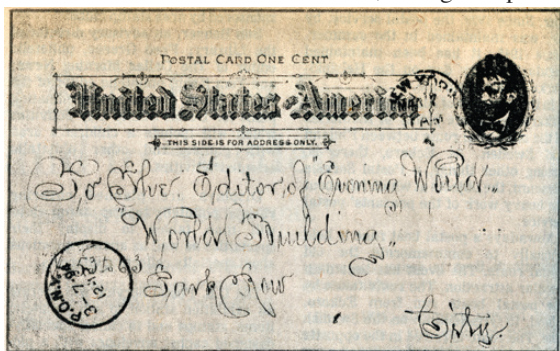 POSTAL CARD ONE CENT
United States of America
NEW YORK
THIS SIDE IS FOR ADDRESS ONLY.
To The Editor, of "Evening World"
World Building,
53 to 63
Park Row
City.
P.O.N.Y.
3-7-94